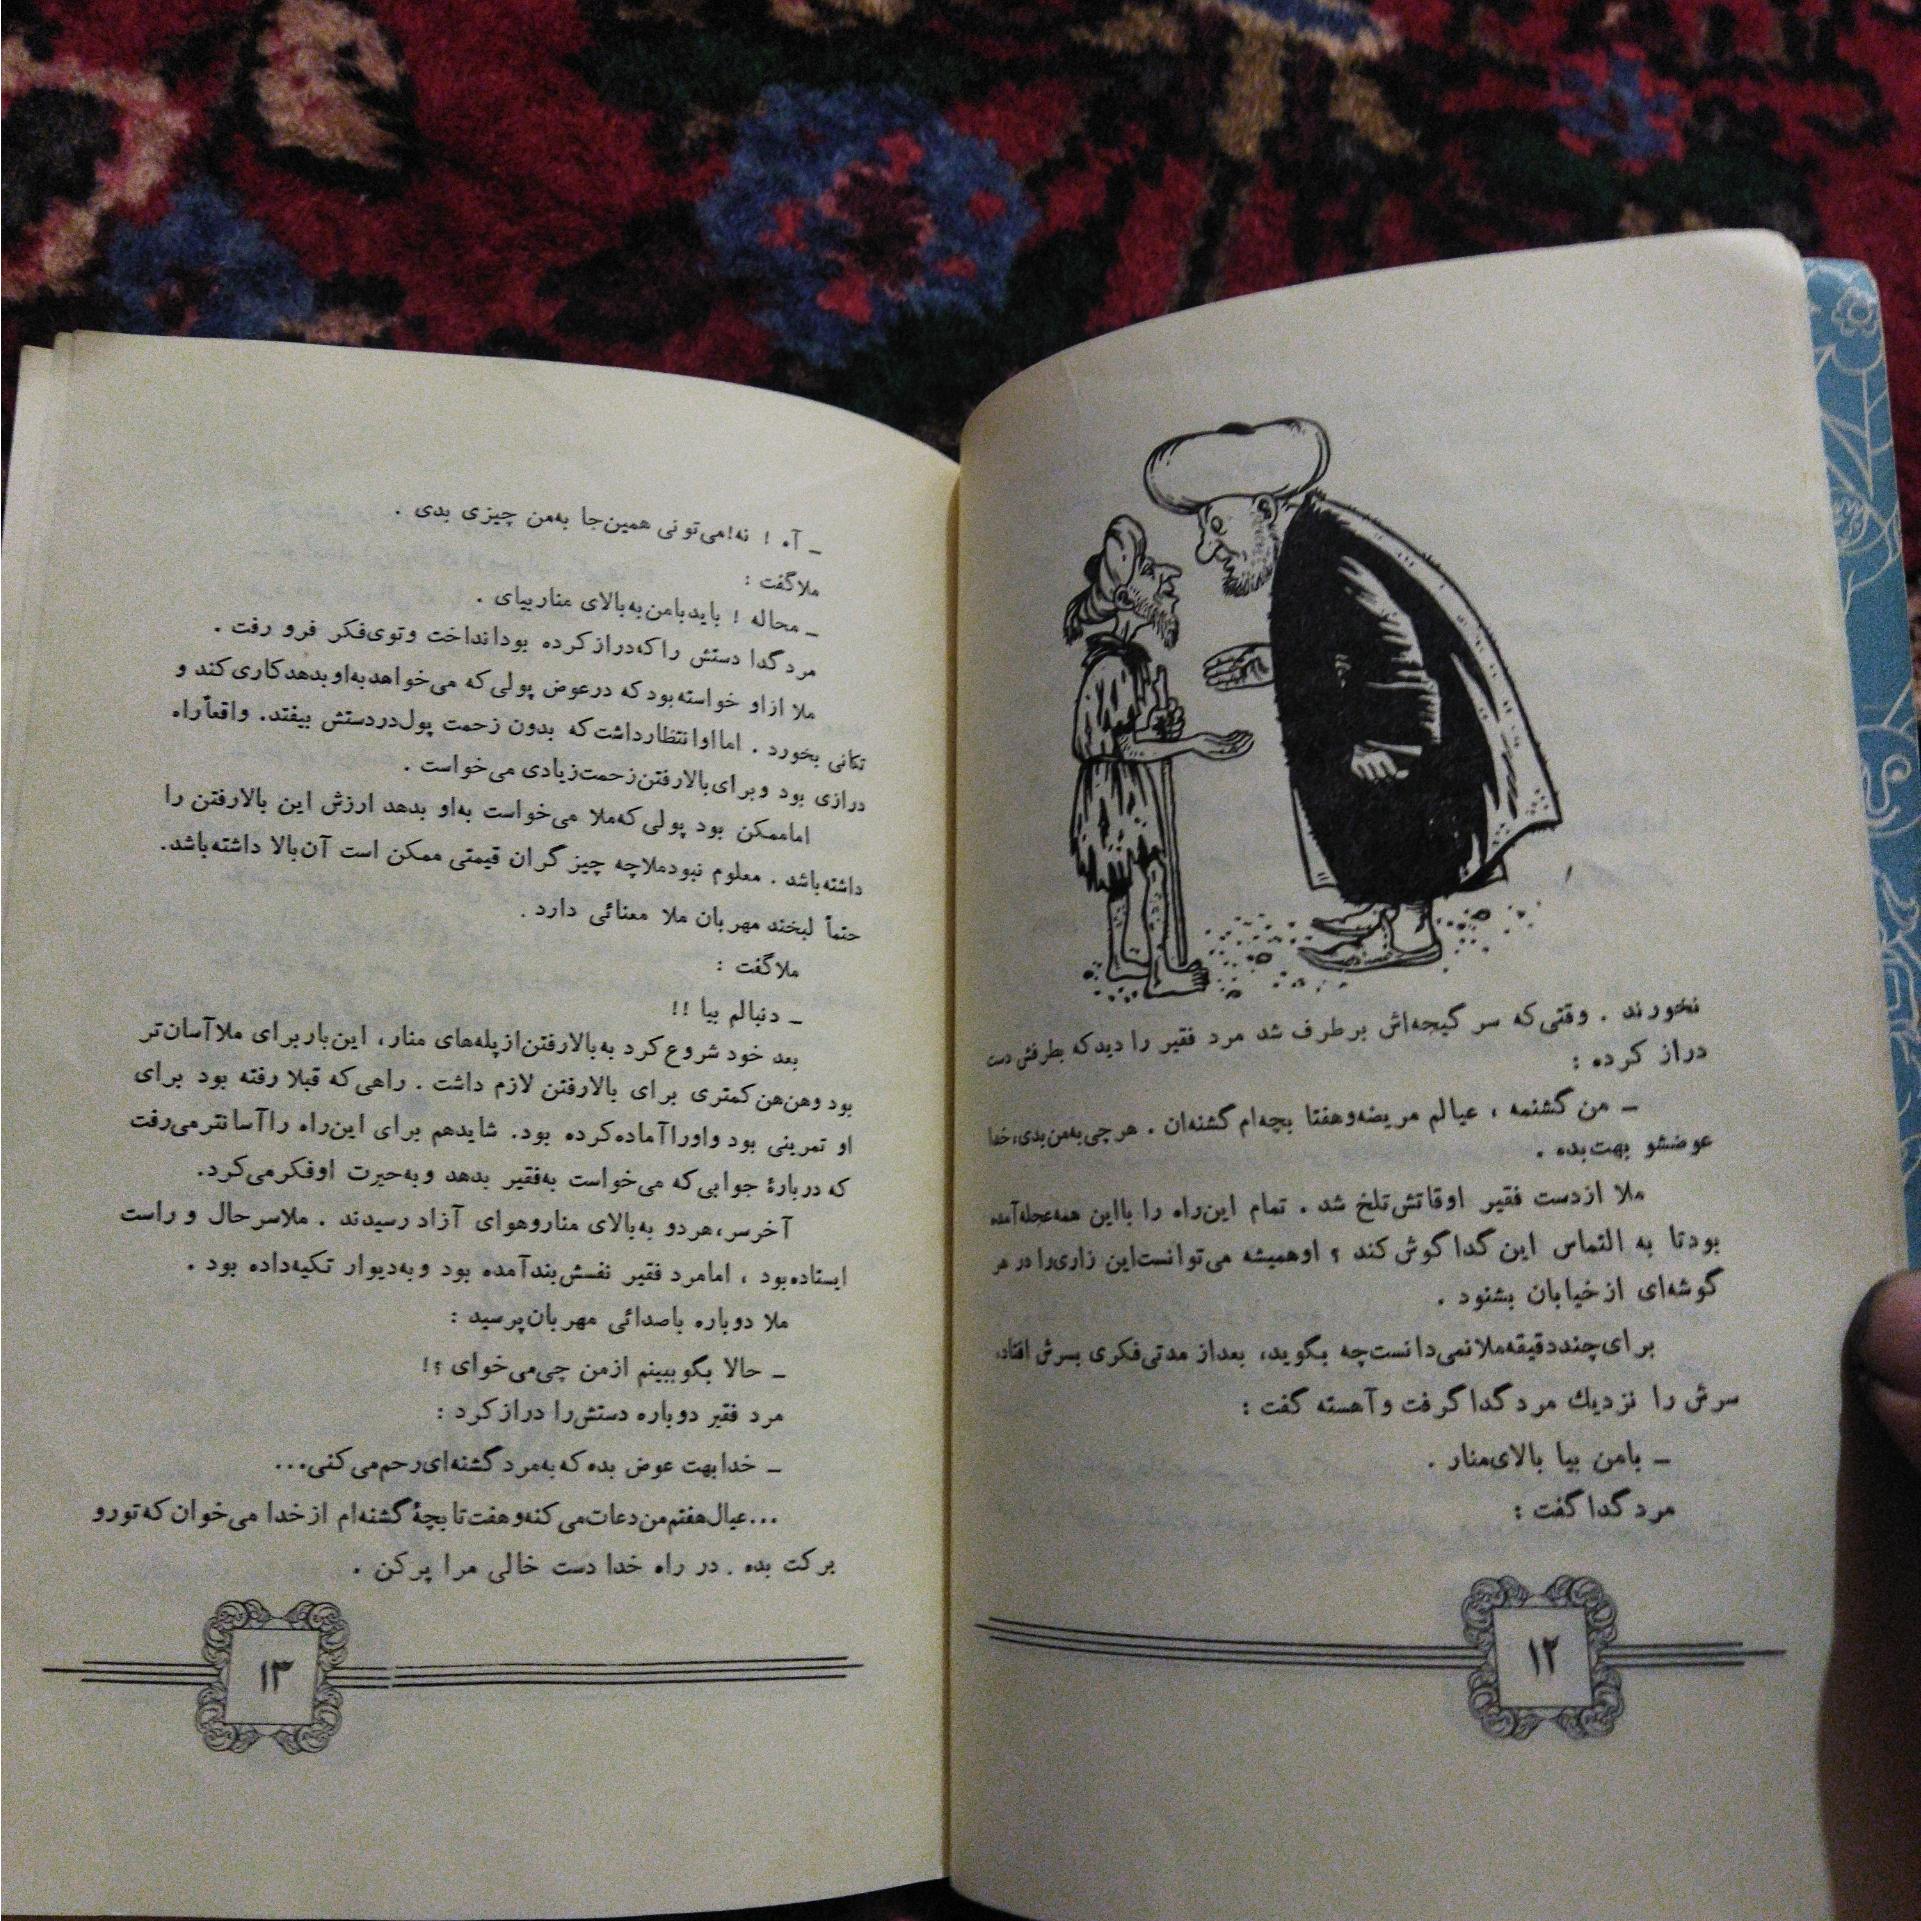 نخورند . وقتی‌که سر گیجه‌اش برطرف شد مرد فقیر را دیدکه بطرفش دست
دراز کرده :
ـ من گشنمه ، عیالم مریضه‌وهفتا بچه‌ام گشنه‌ان . هرچی‌به‌من‌بدی،خدا
عوضشو بهت‌بده .
ملا ازدست فقیر اوقاتش‌تلخ شد . تمام این‌راه را بااین همه‌عجله‌آمده
بودتا به التماس این‌گداگوش‌کند ؟ اوهمیشه می‌توانست‌این زاری‌را در هر
گوشه‌ای ازخیابان بشنود .
برای‌چنددقیقه‌ملانمی‌دانست‌چه بگوید، بعداز مدتی‌فکری بسرش افتاد،
سرش را نزدیك مردگداگرفت وآهسته گفت :
ـ بامن بیا بالای‌منار .
مردگداگفت :
۱۲
ـ آه ! نه!می‌تونی همین‌جا به‌من چیزی بدی .
ملاگفت :
ـ محاله ! بایدبامن‌به‌بالای مناربیای .
مردگدا دستش راکه‌درازکرده بودانداخت وتوی‌فکر فرو رفت .
ملا ازاو خواسته‌بودکه درعوض پولی‌که می‌خواهدبه‌اوبدهدکاری‌کند و
تکانی بخورد . امااوانتظارداشت‌که بدون زحمت پول‌دردستش بیفتد. واقعاً‌راه
درازی بود وبرای‌بالارفتن‌زحمت‌زیادی می‌خواست .
اماممکن بود پولی‌که‌ملا می‌خواست به‌او بدهد ارزش این بالارفتن را
داشته‌باشد . معلوم نبودملاچه چیز گران قیمتی ممکن است آن‌بالا داشته‌باشد.
حتماً لبخند مهربان ملا معنائی دارد .
ملاگفت :
ـ دنبالم بیا !!
بعد خود شروع‌کرد به‌بالارفتن‌ازپله‌های منار، این‌باربرای ملاآسان‌تر
بود وهن‌هن‌کمتری برای بالارفتن لازم داشت . راهی‌که قبلا رفته بود برای
او تمرینی بود واوراآماده‌کرده بود. شایدهم برای این‌راه راآسانترمی‌رفت
که دربارهٔ جوابی‌که می‌خواست به‌فقیر بدهد وبه‌حیرت اوفکرمی‌کرد.
آخرسر،هردو به‌بالای مناروهوای آزاد رسیدند . ملاسرحال و راست
ایستاده‌بود ، امامرد فقیر نفسش‌بندآمده بود وبه‌دیوار تکیه‌داده بود .
ملا دوباره باصدائی مهربان‌پرسید :
ـ حالا بگوببینم ازمن چی‌می‌خوای ؟!
مرد فقیر دوباره دستش‌را درازکرد :
ـ خدابهت عوض بده‌که‌به‌مردگشنه‌ای‌رحم‌می‌کنی...
...عیال‌هفتم‌من‌دعات‌می‌کنه‌وهفت‌تابچهٔ گشنه‌ام ازخدا می‌خوان‌که‌تورو
برکت بده . در راه خدا دست خالی مرا پرکن .
۱۳